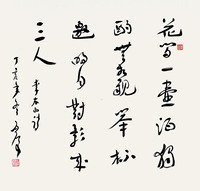 花间一壶酒独
酌无相亲举杯
邀明月对影成
三人 李白诗
丁亥年